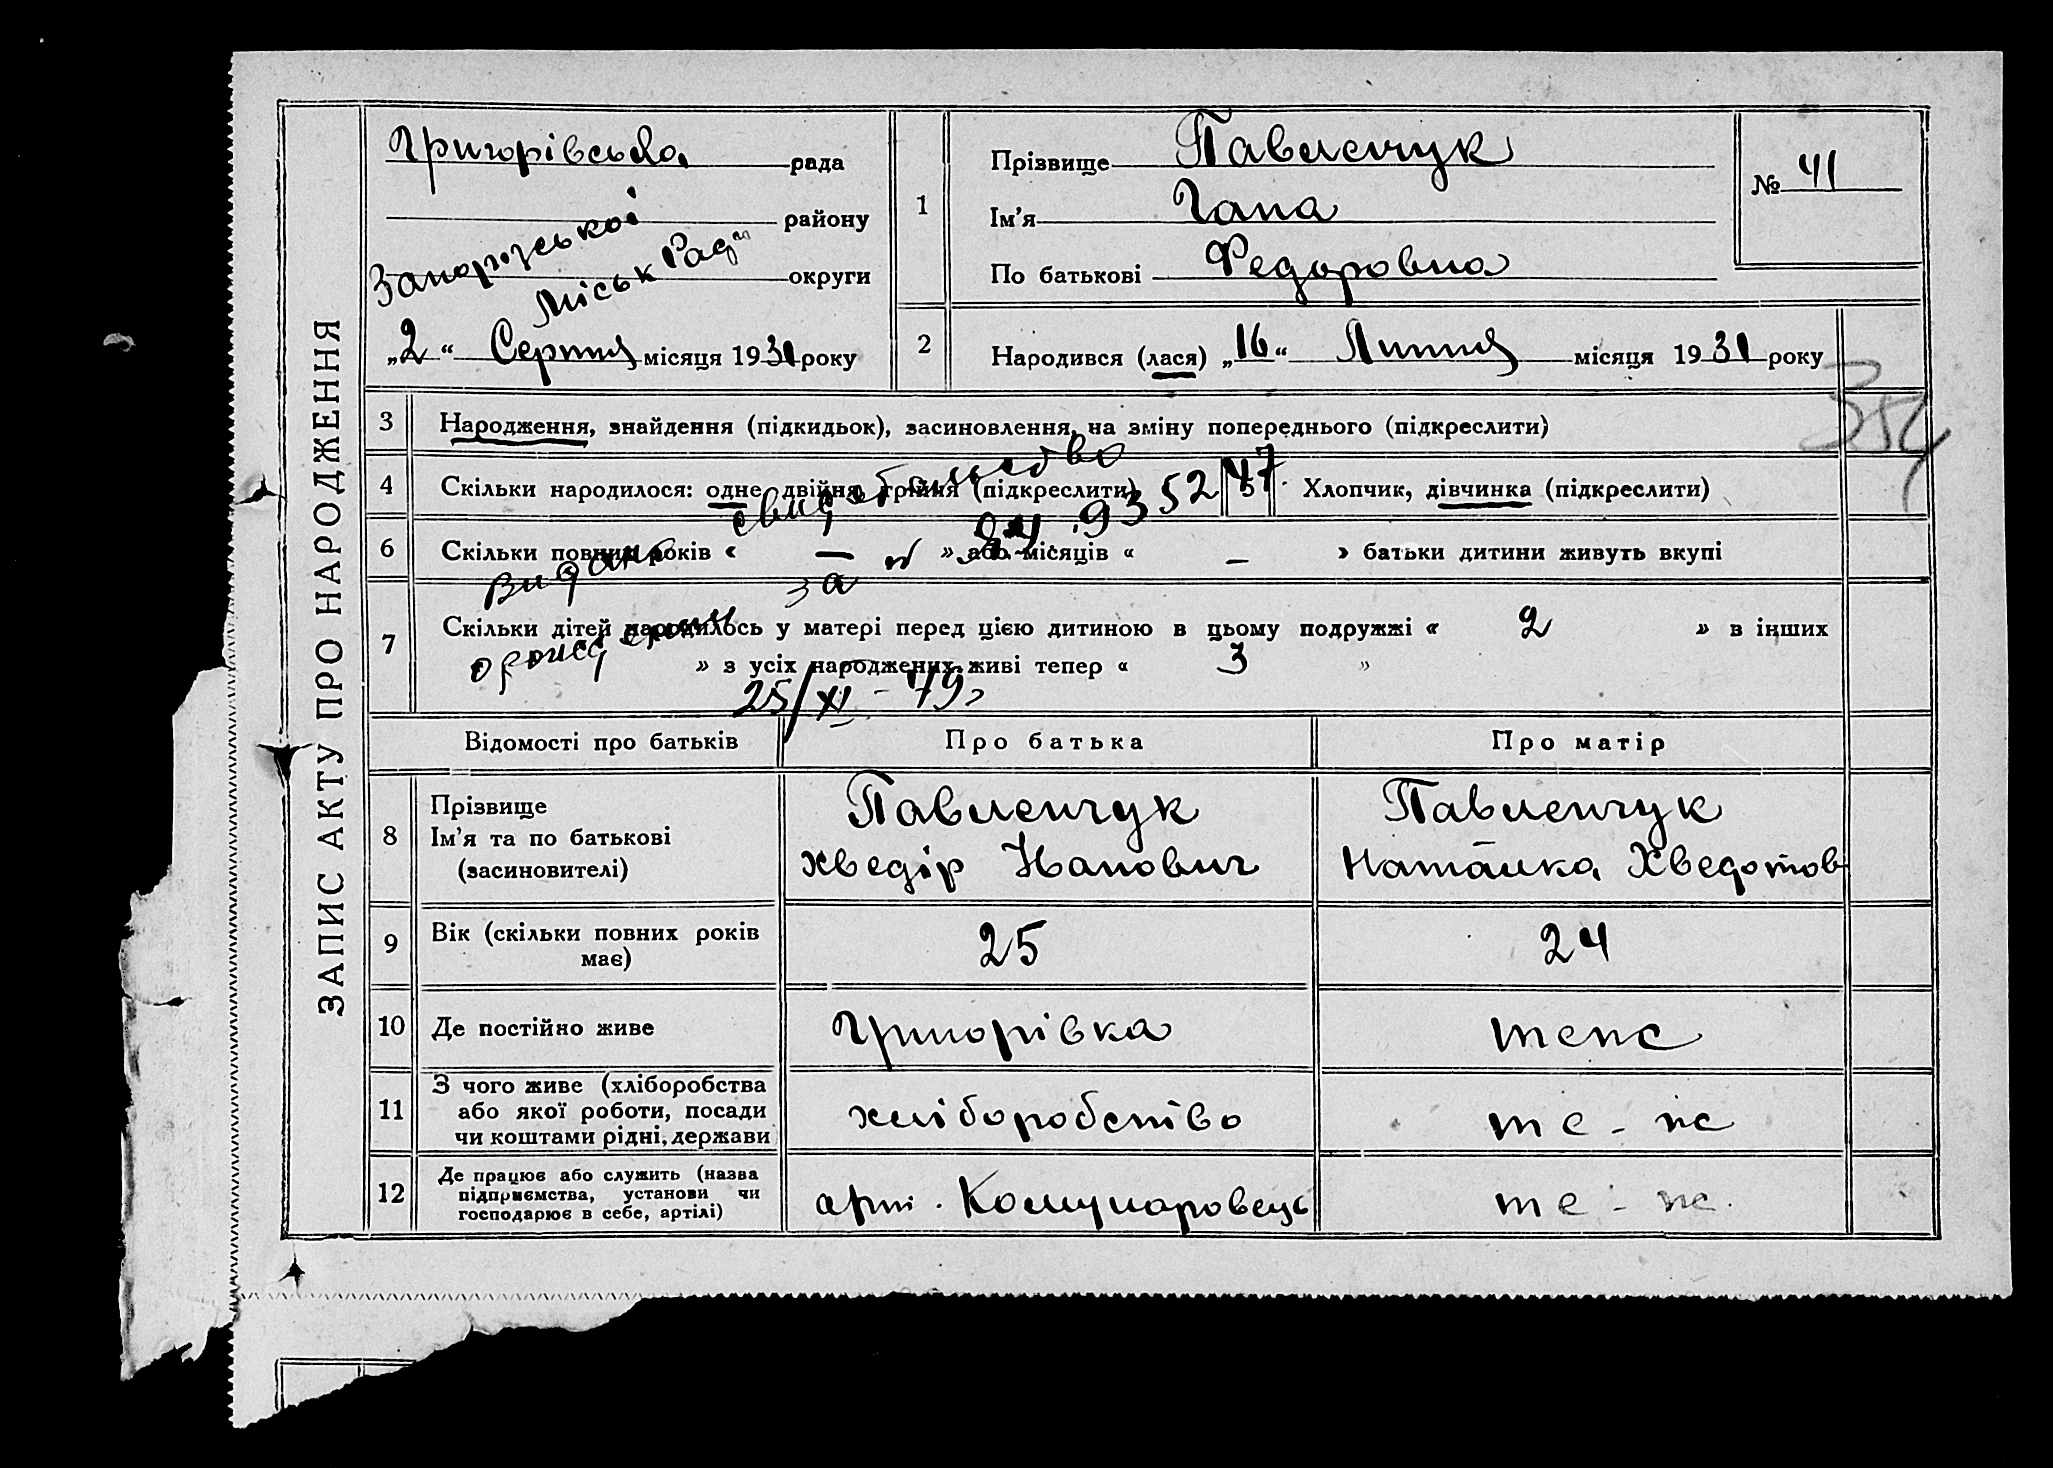 ЗАПИС АКТУ ПРО НАРОДЖЕННЯ
Григорівська рада
району
Запорізької
округи
Міськ Рад
„2“ Серпня місяця 1931 року
1
Прізвище Павленчук
Ім'я Гана
По батькові Федоровна
№ 41
2
Народився (лася) „16“ Липня місяця 1931 року
354
3 Народження, знайдення (підкидьок), засиновлення, на зміну попереднього (підкреслити)
4 Скільки народилося: одне, двійня, трійня (підкреслити) 5 Хлопчик, дівчинка (підкреслити)
6 Скільки повних років « — » або місяців « — » батьки дитини живуть вкупі
7 Скільки дітей народилось у матері перед цією дитиною в цьому подружжі « 2 » в інших
» з усіх народжених живі тепер « 3 »
свидетельство
935247
за №
25/XI - 79
Відомості про батьків Про батька Про матір
8 Прізвище Павленчук Павленчук
Ім'я та по батькові Хведір Іванович Наталка Хведотов
(засиновителі)
9 Вік (скільки повних років 25 24
має)
10 Де постійно живе Григорівка теж
11 З чого живе (хліборобства
або якої роботи, посади хліборобство те-ж
чи коштами рідні, держави
12 Де працює або служить (назва
підприємства, установи чи арт. Комунаровець те-ж.
господарює в себе, артілі)